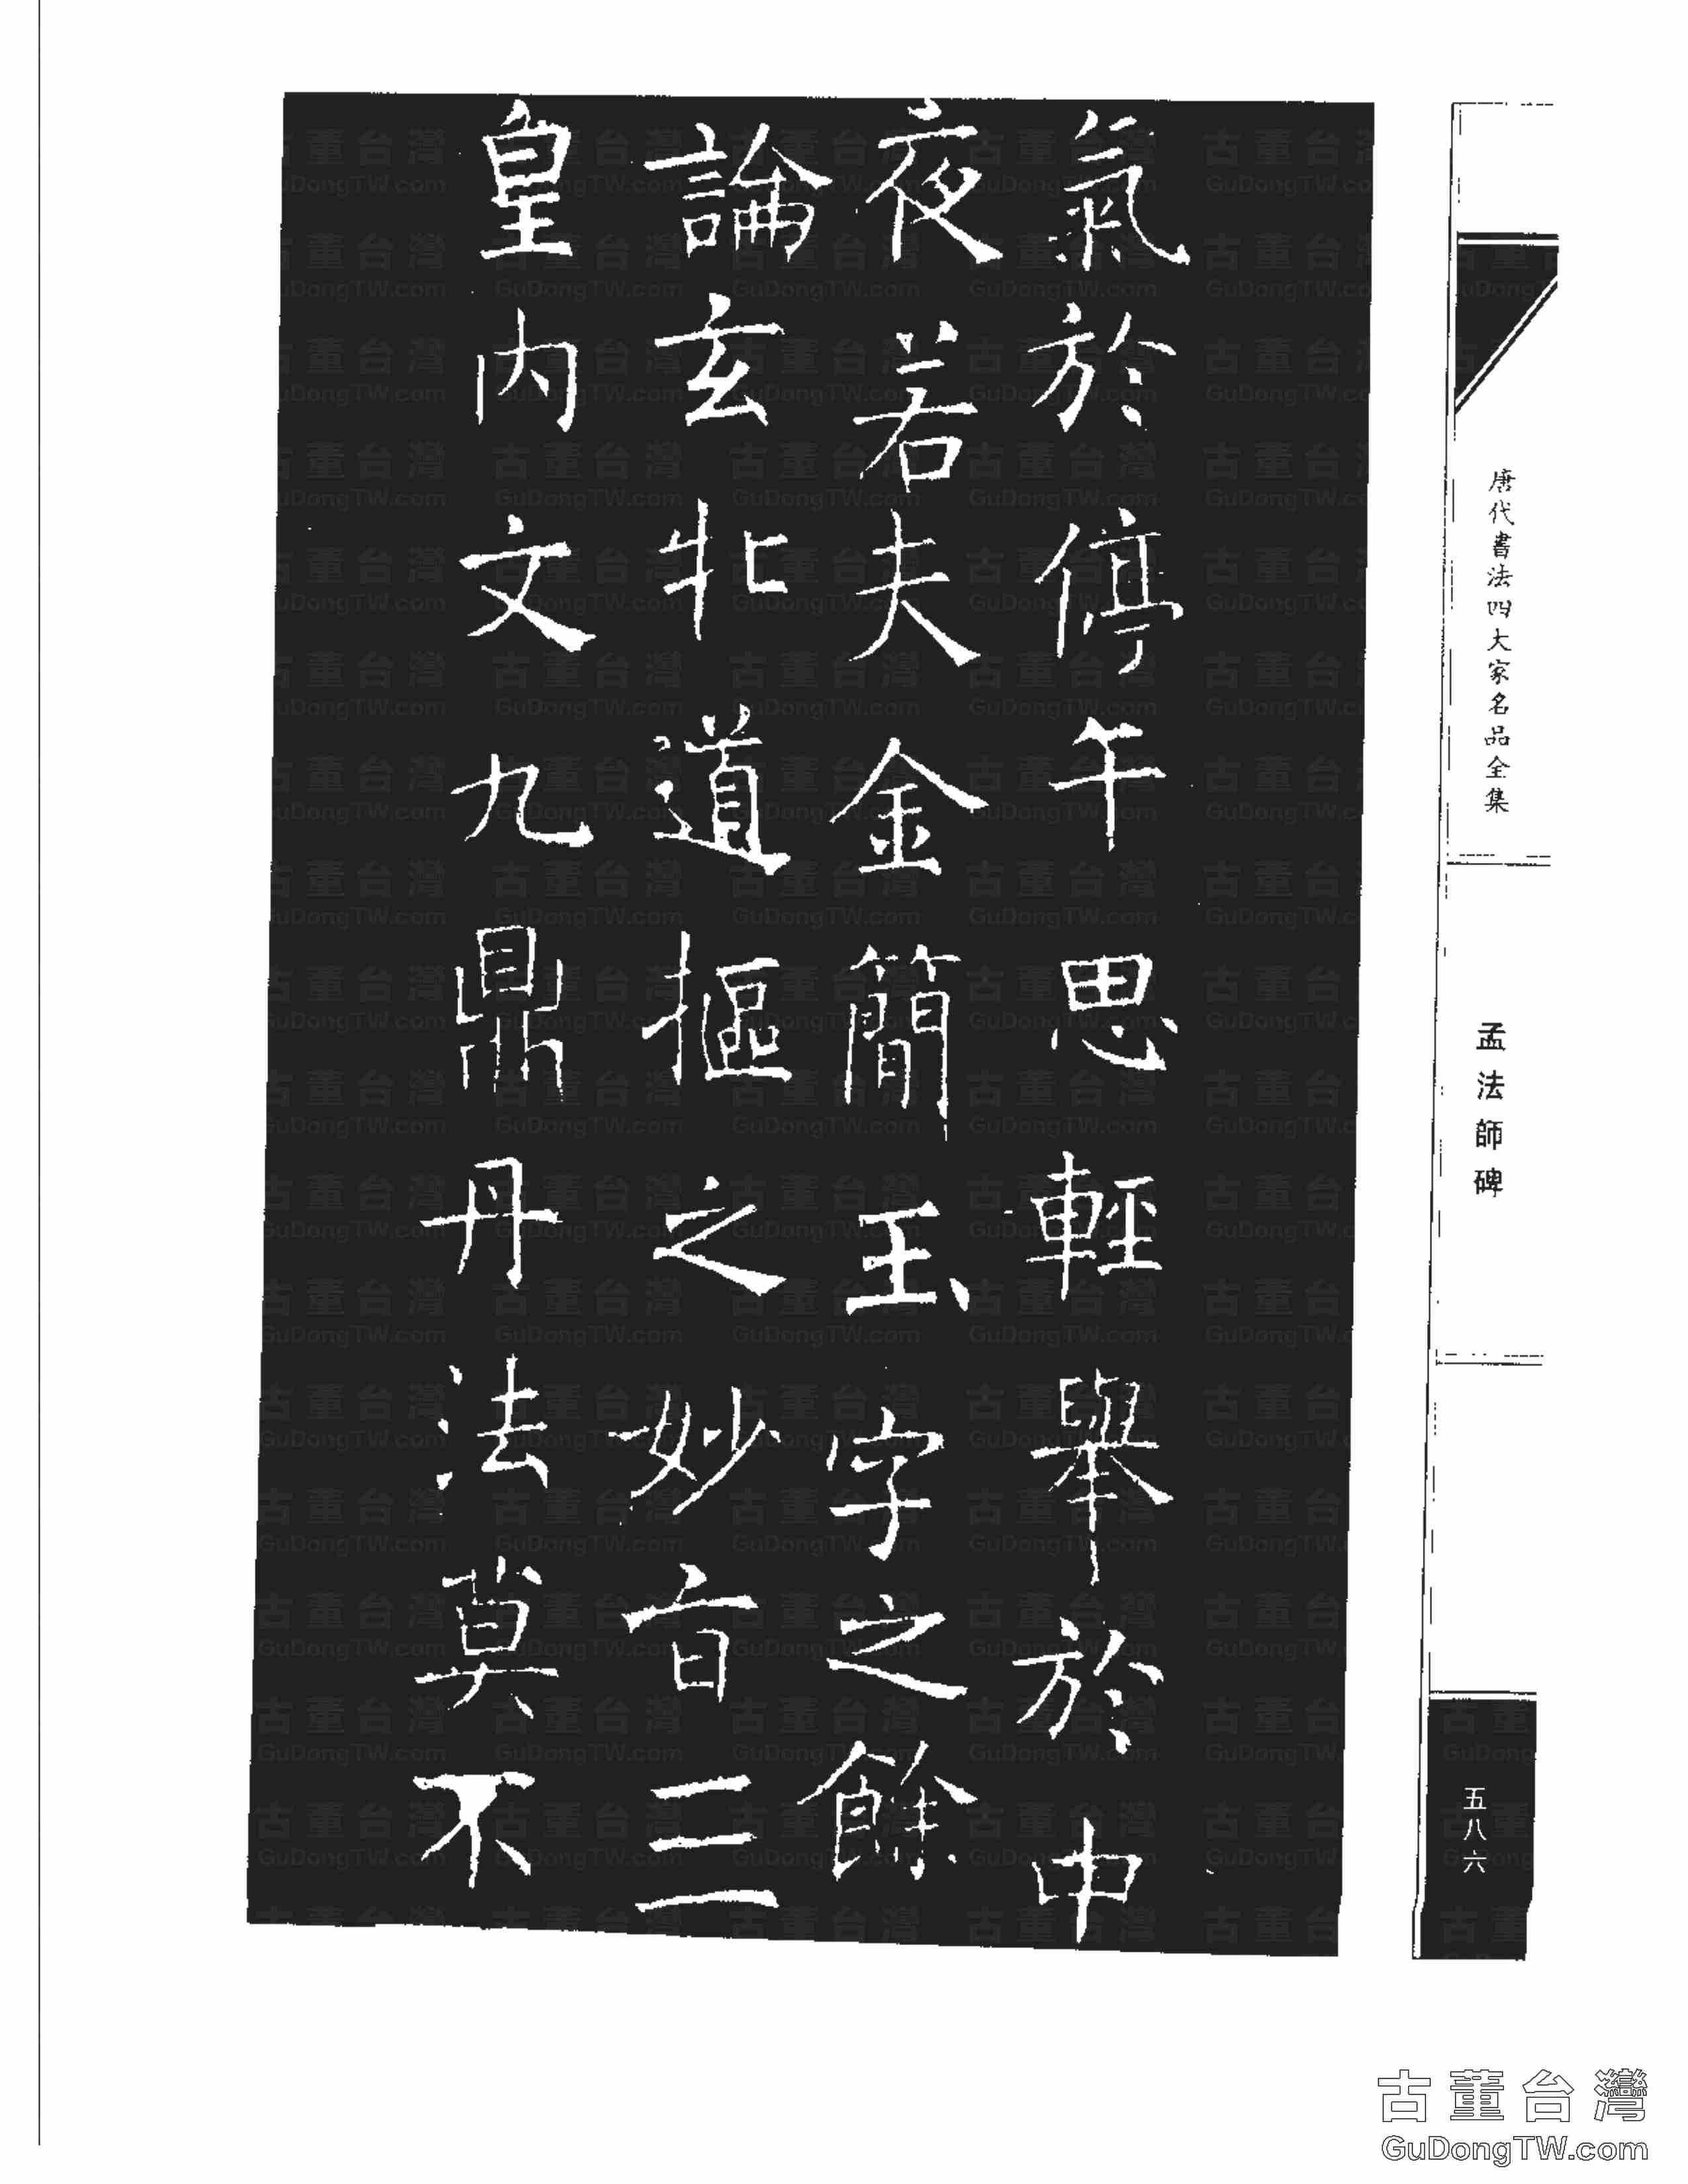 唐代書法四大家名品全集
孟法師碑
五八六
氣於停午思輕舉於中
夜若夫金簡玉字之餘
論玄牝道摳之妙旨三
皇内文九鼎丹法莫不
古董台灣
GuDongTW.com